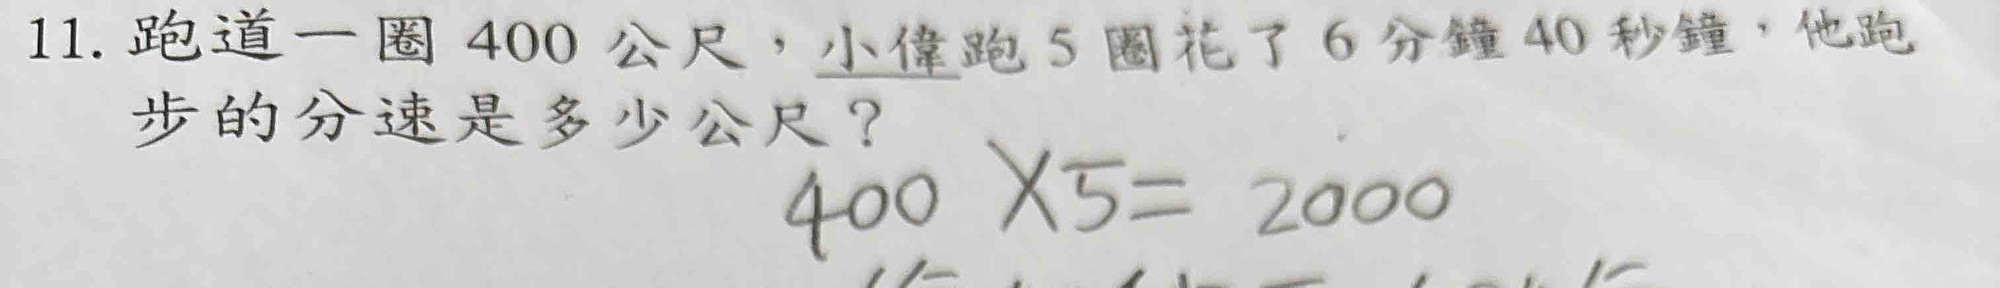 11. 跑道一圈 400 公尺，小偉跑 5 圈花了 6 分鐘 40 秒鐘，他跑
步的分速是多少公尺？
400 ×5= 2000